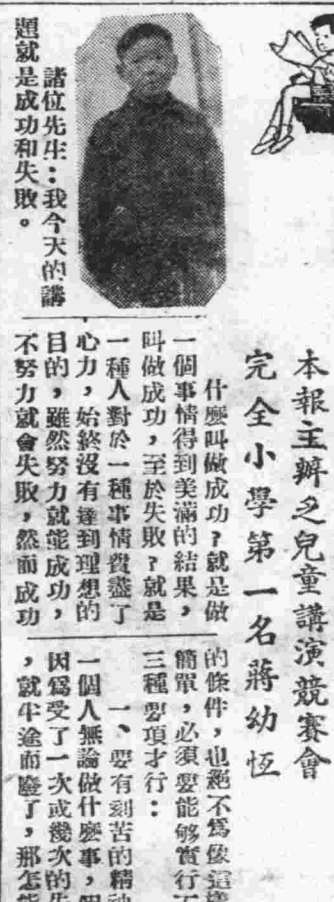 本報主辦之兒童講演競賽會
完全小學第一名蔣幼恆
諸位先生：我今天的講
題就是成功和失敗。
什麼叫做成功？就是做
一個事情得到美滿的結果，
叫做成功，至於失敗？就是
一種人對於一種事情費盡了
心力，始終沒有達到理想的
目的，雖然努力就能成功，
不努力就會失敗，然而成功
的條件，也絕不爲像這樣
簡單，必須要能够實行
三種要項才行：
一、要有刻苦的精神
一個人無論做什麼事，
因爲受了一次或幾次的失
，就半途而廢了，那怎能